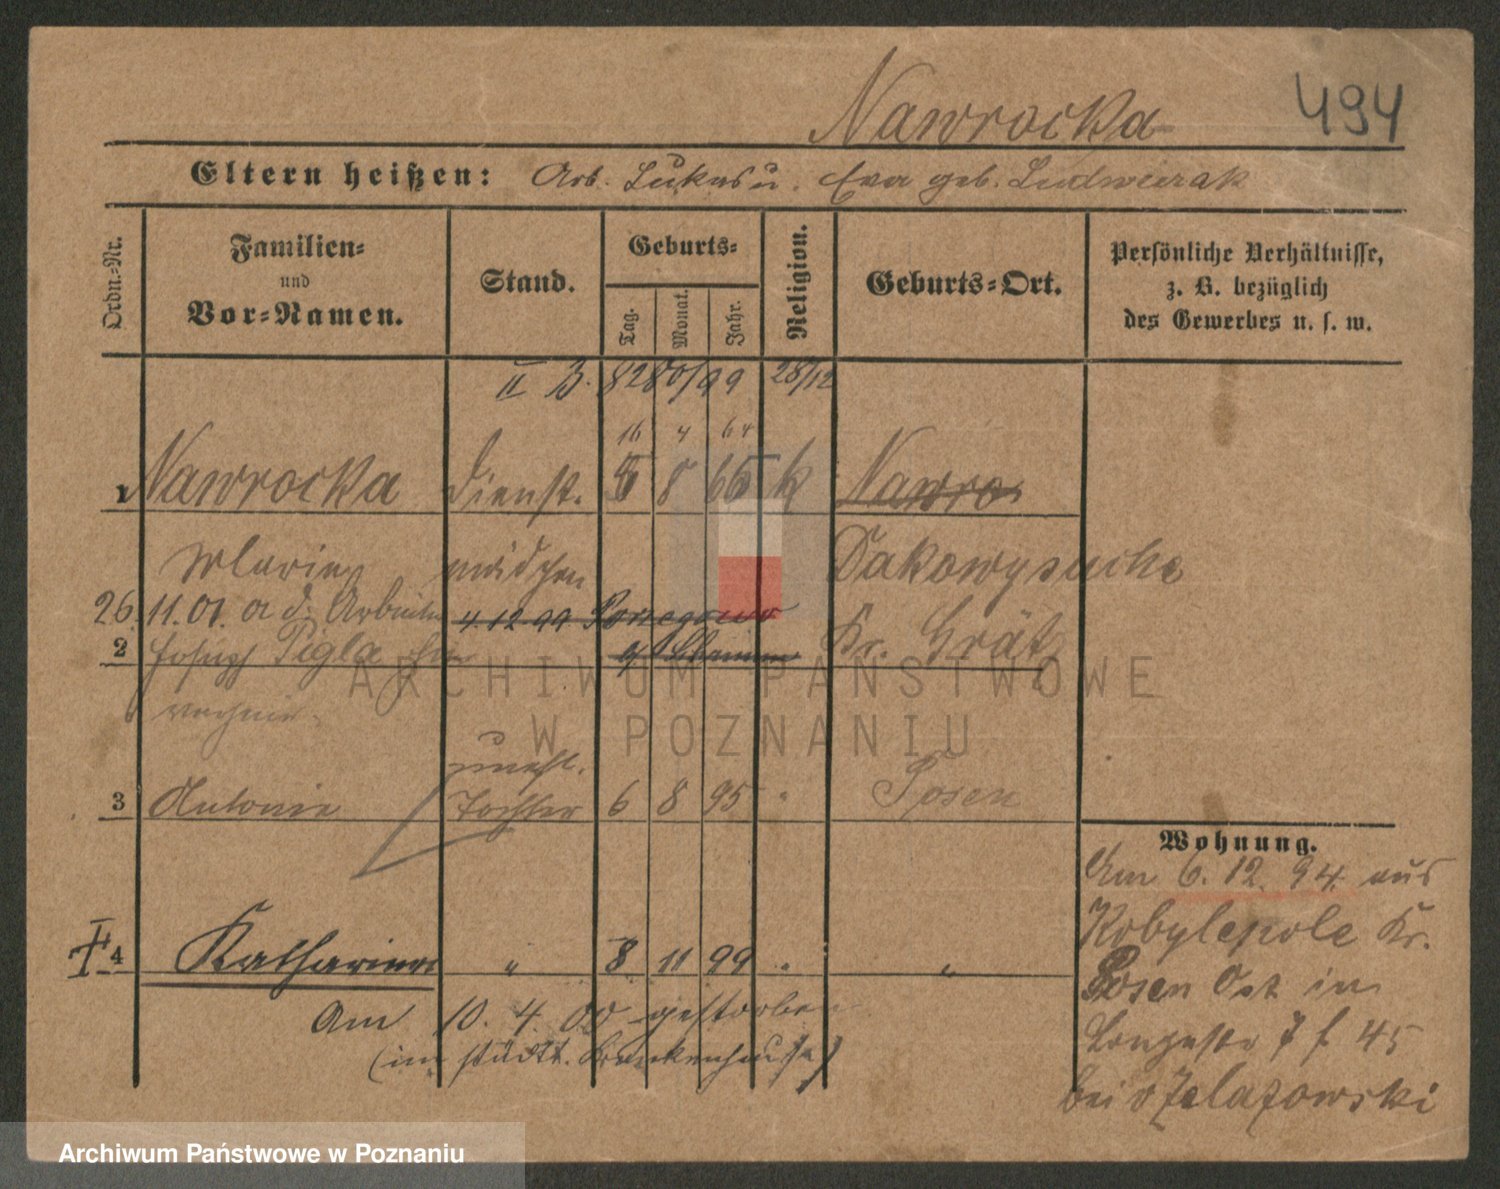 Nawrocka 494
Eltern heißen: Arb. Lukas u. Eva geb. Ludwiczak
Ordn.-Nr.
Familien-
und
Vor-Namen.
Stand.
Geburts-
Tag. Monat. Jahr.
Religion.
Geburts-Ort.
Persönliche Verhältnisse,
z. B. bezüglich
des Gewerbes u. s. w.
II B. 8280/99 28/12
16 4 64
1 Nawrocka Dienst- 5 8 65 k Nawro
Maria mädchen Dakowysuche
26. 11.01. a d. Arbeiter 4.12.99
2 Joseph Pigla Kr. Grätz
unehl.
3 Antonie Tochter 6 8 95 " Posen
4 Katharina " 8 11 99 " "
Am 10. 4. 00 gestorben
(im städt. Krankenhause)
Wohnung.
Am 6. 12. 94. aus
Kobylepole Kr.
Posen Ost in
45
bei v Zelazowski
ARCHIWUM PAŃSTWOWE
W POZNANIU
Archiwum Państwowe w Poznaniu